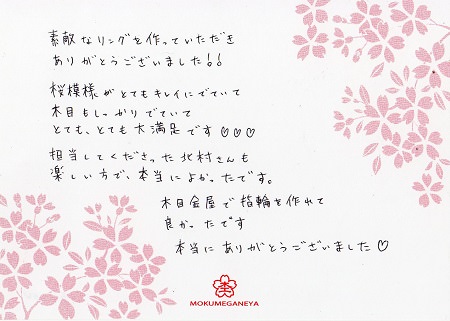 素敵なリングを作っていただき
ありがとうございました!!
桜模様がとてもキレイにでていて
木目もしっかりでていて
とても、とても大満足です♡♡♡
担当してくださった北村さんも
楽しい方で、本当によかったです。
木目金屋で指輪を作れて
良かったです
本当にありがとうございました♡
MOKUMEGANEYA